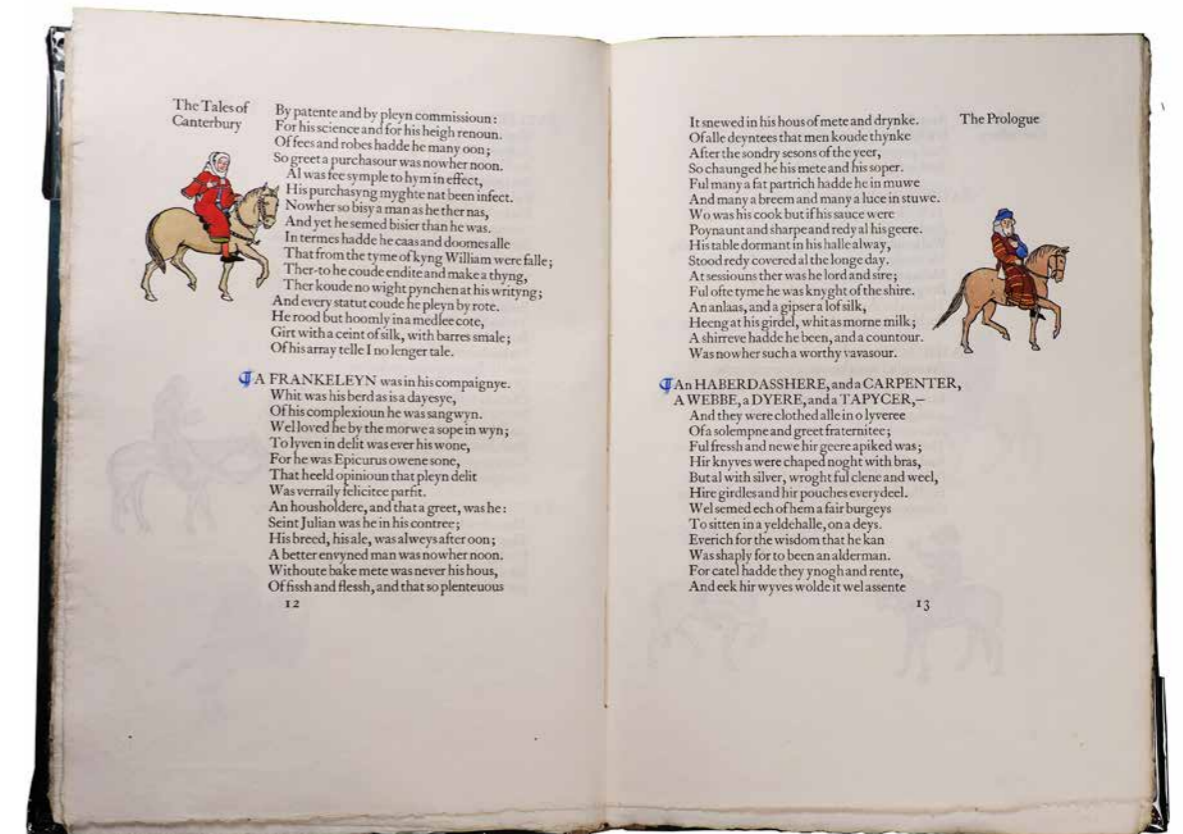 The Tales of
Canterbury
By patente and by pleyn commissioun:
For his science and for his heigh renoun.
Of fees and robes hadde he many oon;
So greet a purchasour was nowher noon.
Al was fee symple to hym in effect,
His purchasyng myghte nat been infect.
Nowher so bisy a man as he ther nas,
And yet he semed bisier than he was.
In termes hadde he caas and doomes alle
That from the tyme of kyng William were falle;
Ther-to he coude endite and make a thyng,
Ther koude no wight pynchen at his writyng;
And every statut coude he pleyn by rote.
He rood but hoomly in a medlee cote,
Girt with a ceint of silk, with barres smale;
Of his array telle I no lenger tale.
¶ A FRANKELEYN was in his compaignye.
Whit was his berd as is a dayesye,
Of his complexioun he was sangwyn.
Wel loved he by the morwe a sope in wyn;
To lyven in delit was ever his wone,
For he was Epicurus owene sone,
That heeld opinioun that pleyn delit
Was verraily felicitee parfit.
An housholdere, and that a greet, was he:
Seint Julian was he in his contree;
His breed, his ale, was alweys after oon;
A better envyned man was nowher noon.
Withoute bake mete was never his hous,
Of fissh and flessh, and that so plenteuous
12
The Prologue
It snewed in his hous of mete and drynke.
Of alle deyntees that men koude thynke
After the sondry sesons of the yeer,
So chaunged he his mete and his soper.
Ful many a fat partrich hadde he in muwe
And many a breem and many a luce in stuwe.
Wo was his cook but if his sauce were
Poynaunt and sharpe and redy al his geere.
His table dormant in his halle alway,
Stood redy covered al the longe day.
At sessiouns ther was he lord and sire;
Ful ofte tyme he was knyght of the shire.
An anlaas, and a gipser al of silk,
Heeng at his girdel, whit as morne milk;
A shirreve hadde he been, and a countour.
Was nowher such a worthy vavasour.
¶ An HABERDASSHERE, and a CARPENTER,
A WEBBE, a DYERE, and a TAPYCER,—
And they were clothed alle in o lyveree
Of a solempne and greet fraternitee;
Ful fressh and newe hir geere apiked was;
Hir knyves were chaped noght with bras,
But al with silver, wroght ful clene and weel,
Hire girdles and hir pouches everydeel.
Wel semed ech of hem a fair burgeys
To sitten in a yeldehalle, on a deys.
Everich for the wisdom that he kan
Was shaply for to been an alderman.
For catel hadde they ynogh and rente,
And eek hir wyves wolde it wel assente
13